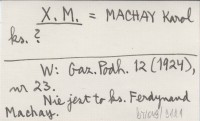 X. M. = MACHAY Karol
ks. ?
W: Gaz. Podh. 12 (1924),
nr 23.
Nie jest to ks. Ferdynand
Machay.